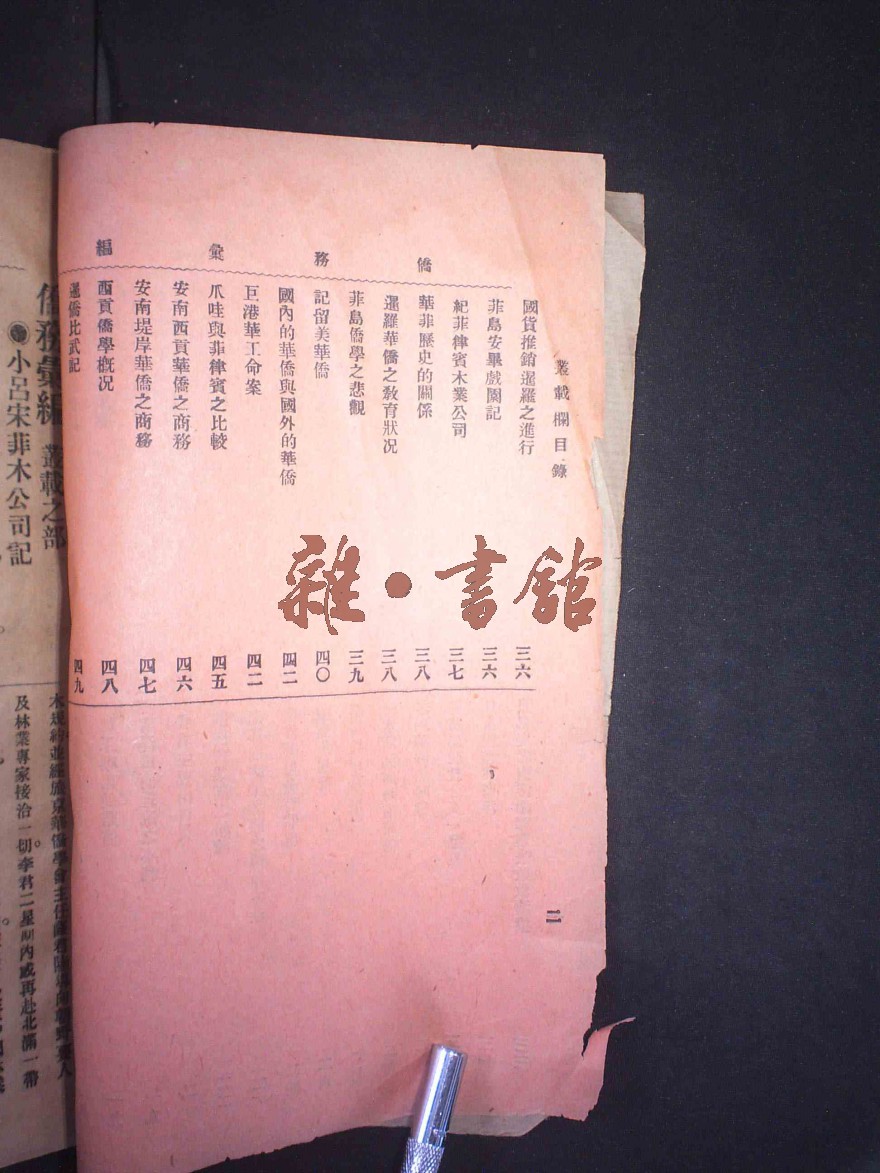 叢載欄目錄
二
僑務彙編
國貨推銷暹羅之進行 三六
菲島安畢戲園記 三六
紀菲律賓木業公司 三七
華菲歷史的關係 三八
暹羅華僑之教育狀况 三八
菲島僑學之悲觀 三九
記留美華僑 四〇
國內的華僑與國外的華僑 四二
巨港華工命案 四二
爪哇與菲律賓之比較 四五
安南西貢華僑之商務 四六
安南堤岸華僑之商務 四七
西貢僑學概况 四八
暹僑比武記 四九
雜·書館
僑務彙編 叢載之部
小呂宋菲木公司記
及林業專家接洽一切。李君二星期內或再赴北滿一帶